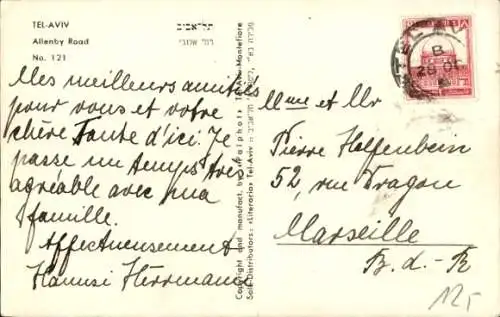 TEL-AVIV
Allenby Road
No. 121
תל־אביב
רח' אלנבי
Mes meilleurs amitiés
pour vous et votre
chère Tante d'ici. Je
passe un temps très
agréable avec ma
famille.
Affectueusement
Hannsi Herrmann
Copyright and manufact. by »Palphot« Tel-Aviv-Montefiore
Sole Distributors: »Literaria« Tel-Aviv
TEL AVIV
B
28 OC
Mme et Mr
Pierre Helfenbein
52, rue Dragon
Marseille
B.-d.-R